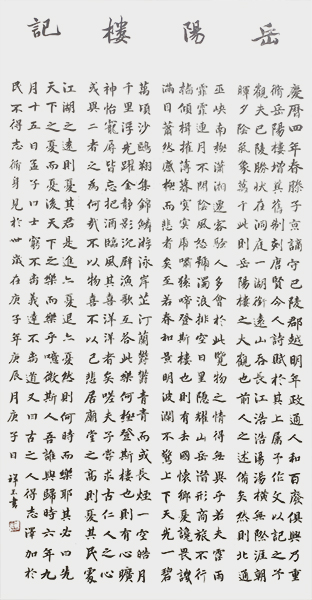 岳陽樓記
慶曆四年春滕子京謫守巴陵郡越明年政通人和百廢俱興乃重
修岳陽樓增其舊制刻唐賢今人詩賦於其上屬予作文以記之予
觀夫巴陵勝狀在洞庭一湖銜遠山吞長江浩浩湯湯橫無際涯朝
暉夕陰氣象萬千此則岳陽樓之大觀也前人之述備矣然則北通
巫峽南極瀟湘遷客騷人多會於此覽物之情得無異乎若夫霪雨
霏霏連月不開陰風怒號濁浪排空日星隱耀山岳潛形商旅不行
檣傾楫摧薄暮冥冥虎嘯猿啼登斯樓也則有去國懷鄉憂讒畏譏
滿目蕭然感極而悲者矣至若春和景明波瀾不驚上下天光一碧
萬頃沙鷗翔集錦鱗游泳岸芷汀蘭鬱鬱青青而或長煙一空皓月
千里浮光躍金靜影沉璧漁歌互答此樂何極登斯樓也則有心曠
神怡寵辱皆忘把酒臨風其喜洋洋者矣嗟夫予嘗求古仁人之心
或異二者之為何哉不以物喜不以己悲居廟堂之高則憂其民處
江湖之遠則憂其君是進亦憂退亦憂然則何時而樂耶其必曰先
天下之憂而憂後天下之樂而樂乎噫微斯人吾誰與歸時六年九
月十五日孟子曰士窮不失義達不離道又曰古之人得志澤加於
民不得志修身見於世歲在庚子年庚辰月庚子日